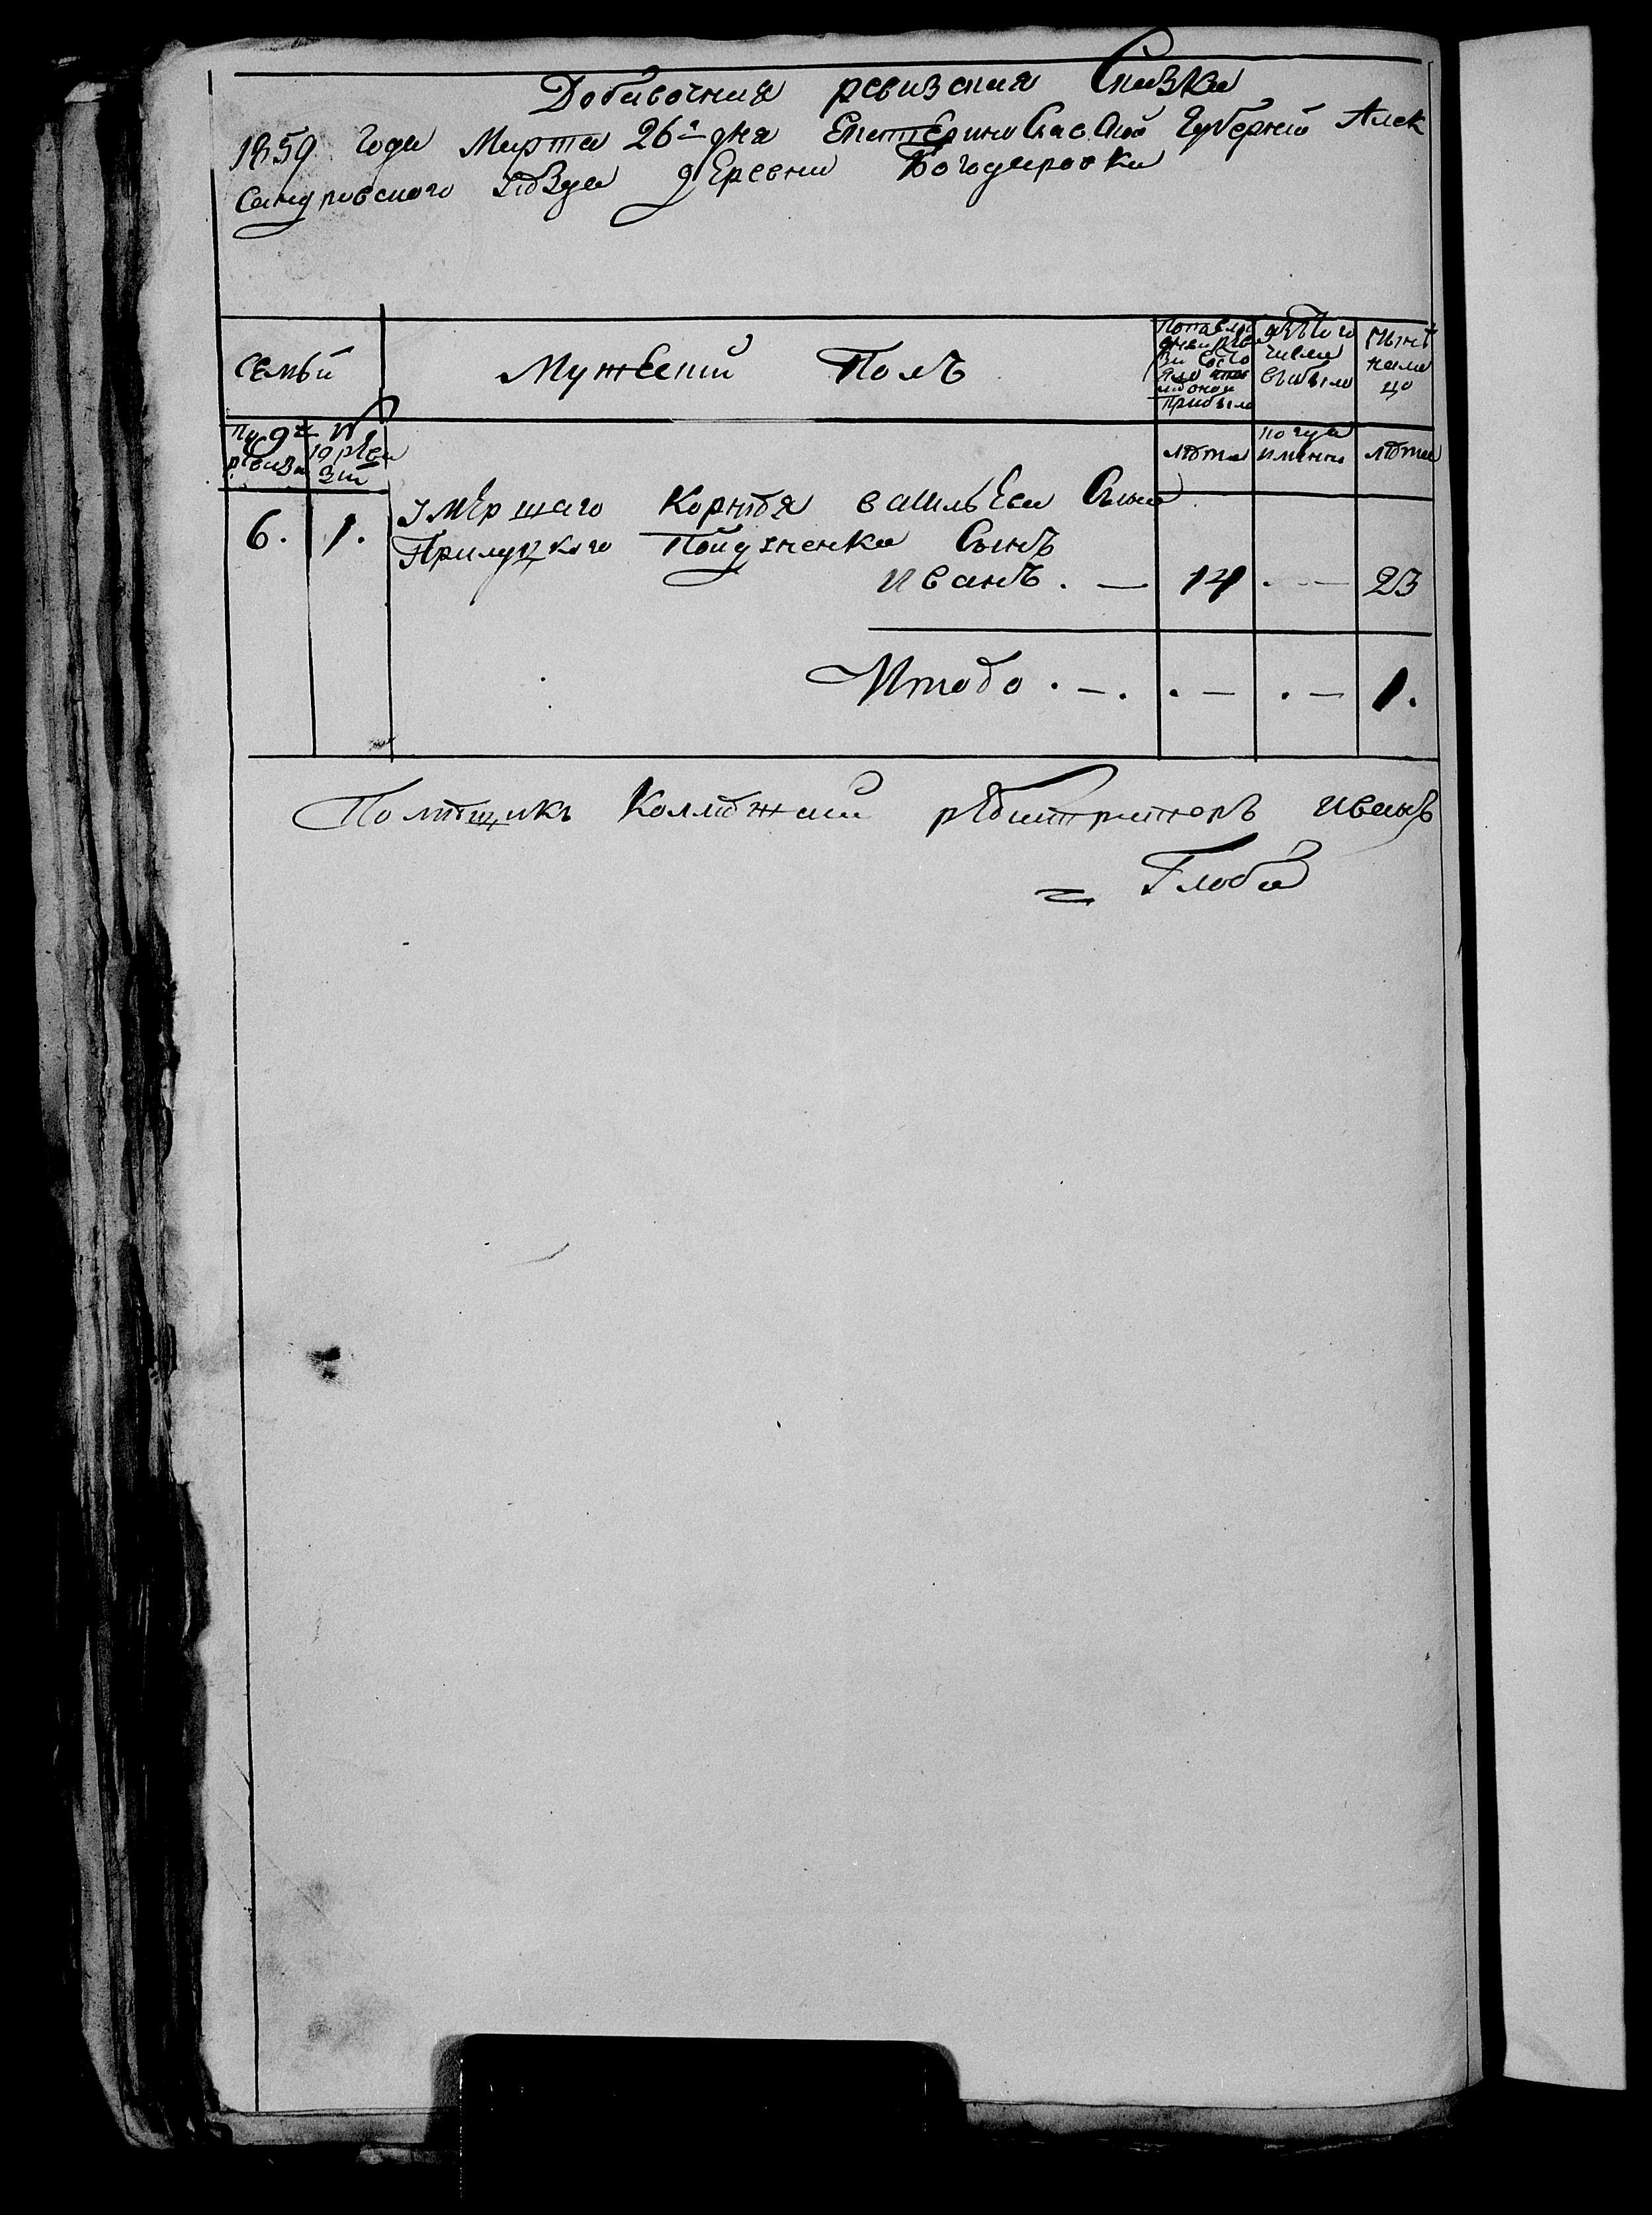 Добавочная ревизская Сказка
1859 года Марта 26го дня Екатеринославской Губерніи Алек
сандровского уѣзда деревни Богодаровки
Семьи
Мужеский Полъ
По послѣ
дней реви
зіи состо
яло и по
слѣ оной
прибыло
изъ того
числа
выбыло
нынѣ
нали
цо
По 9й
ревизи
10 реви
зіи
лѣта
когда
именно
лѣта
6. 1. умершаго Корнѣя васильева Сына
Прилуцкого Сынъ
иванъ . — 14 . — 23
Итого . — . . — . — 1.
Помѣщикъ Коллѣжский рѣгистраторъ иванъ
= Глоба